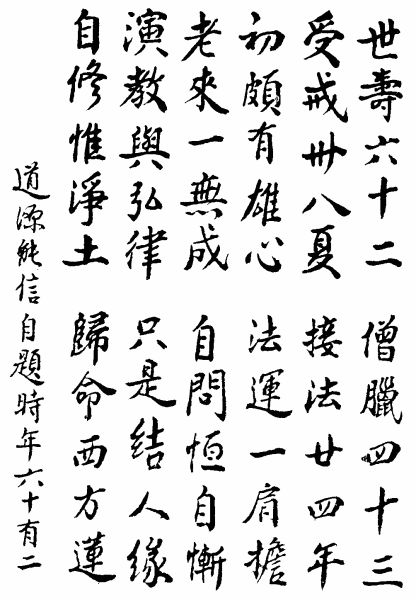 世壽六十二　僧臘四十三
受戒卅八夏　接法廿四年
初頗有雄心　法運一肩擔
老來一無成　自問恒自慚
演教與弘律　只是結人緣
自修惟淨土　歸命西方蓮
道源能信自題時年六十有二